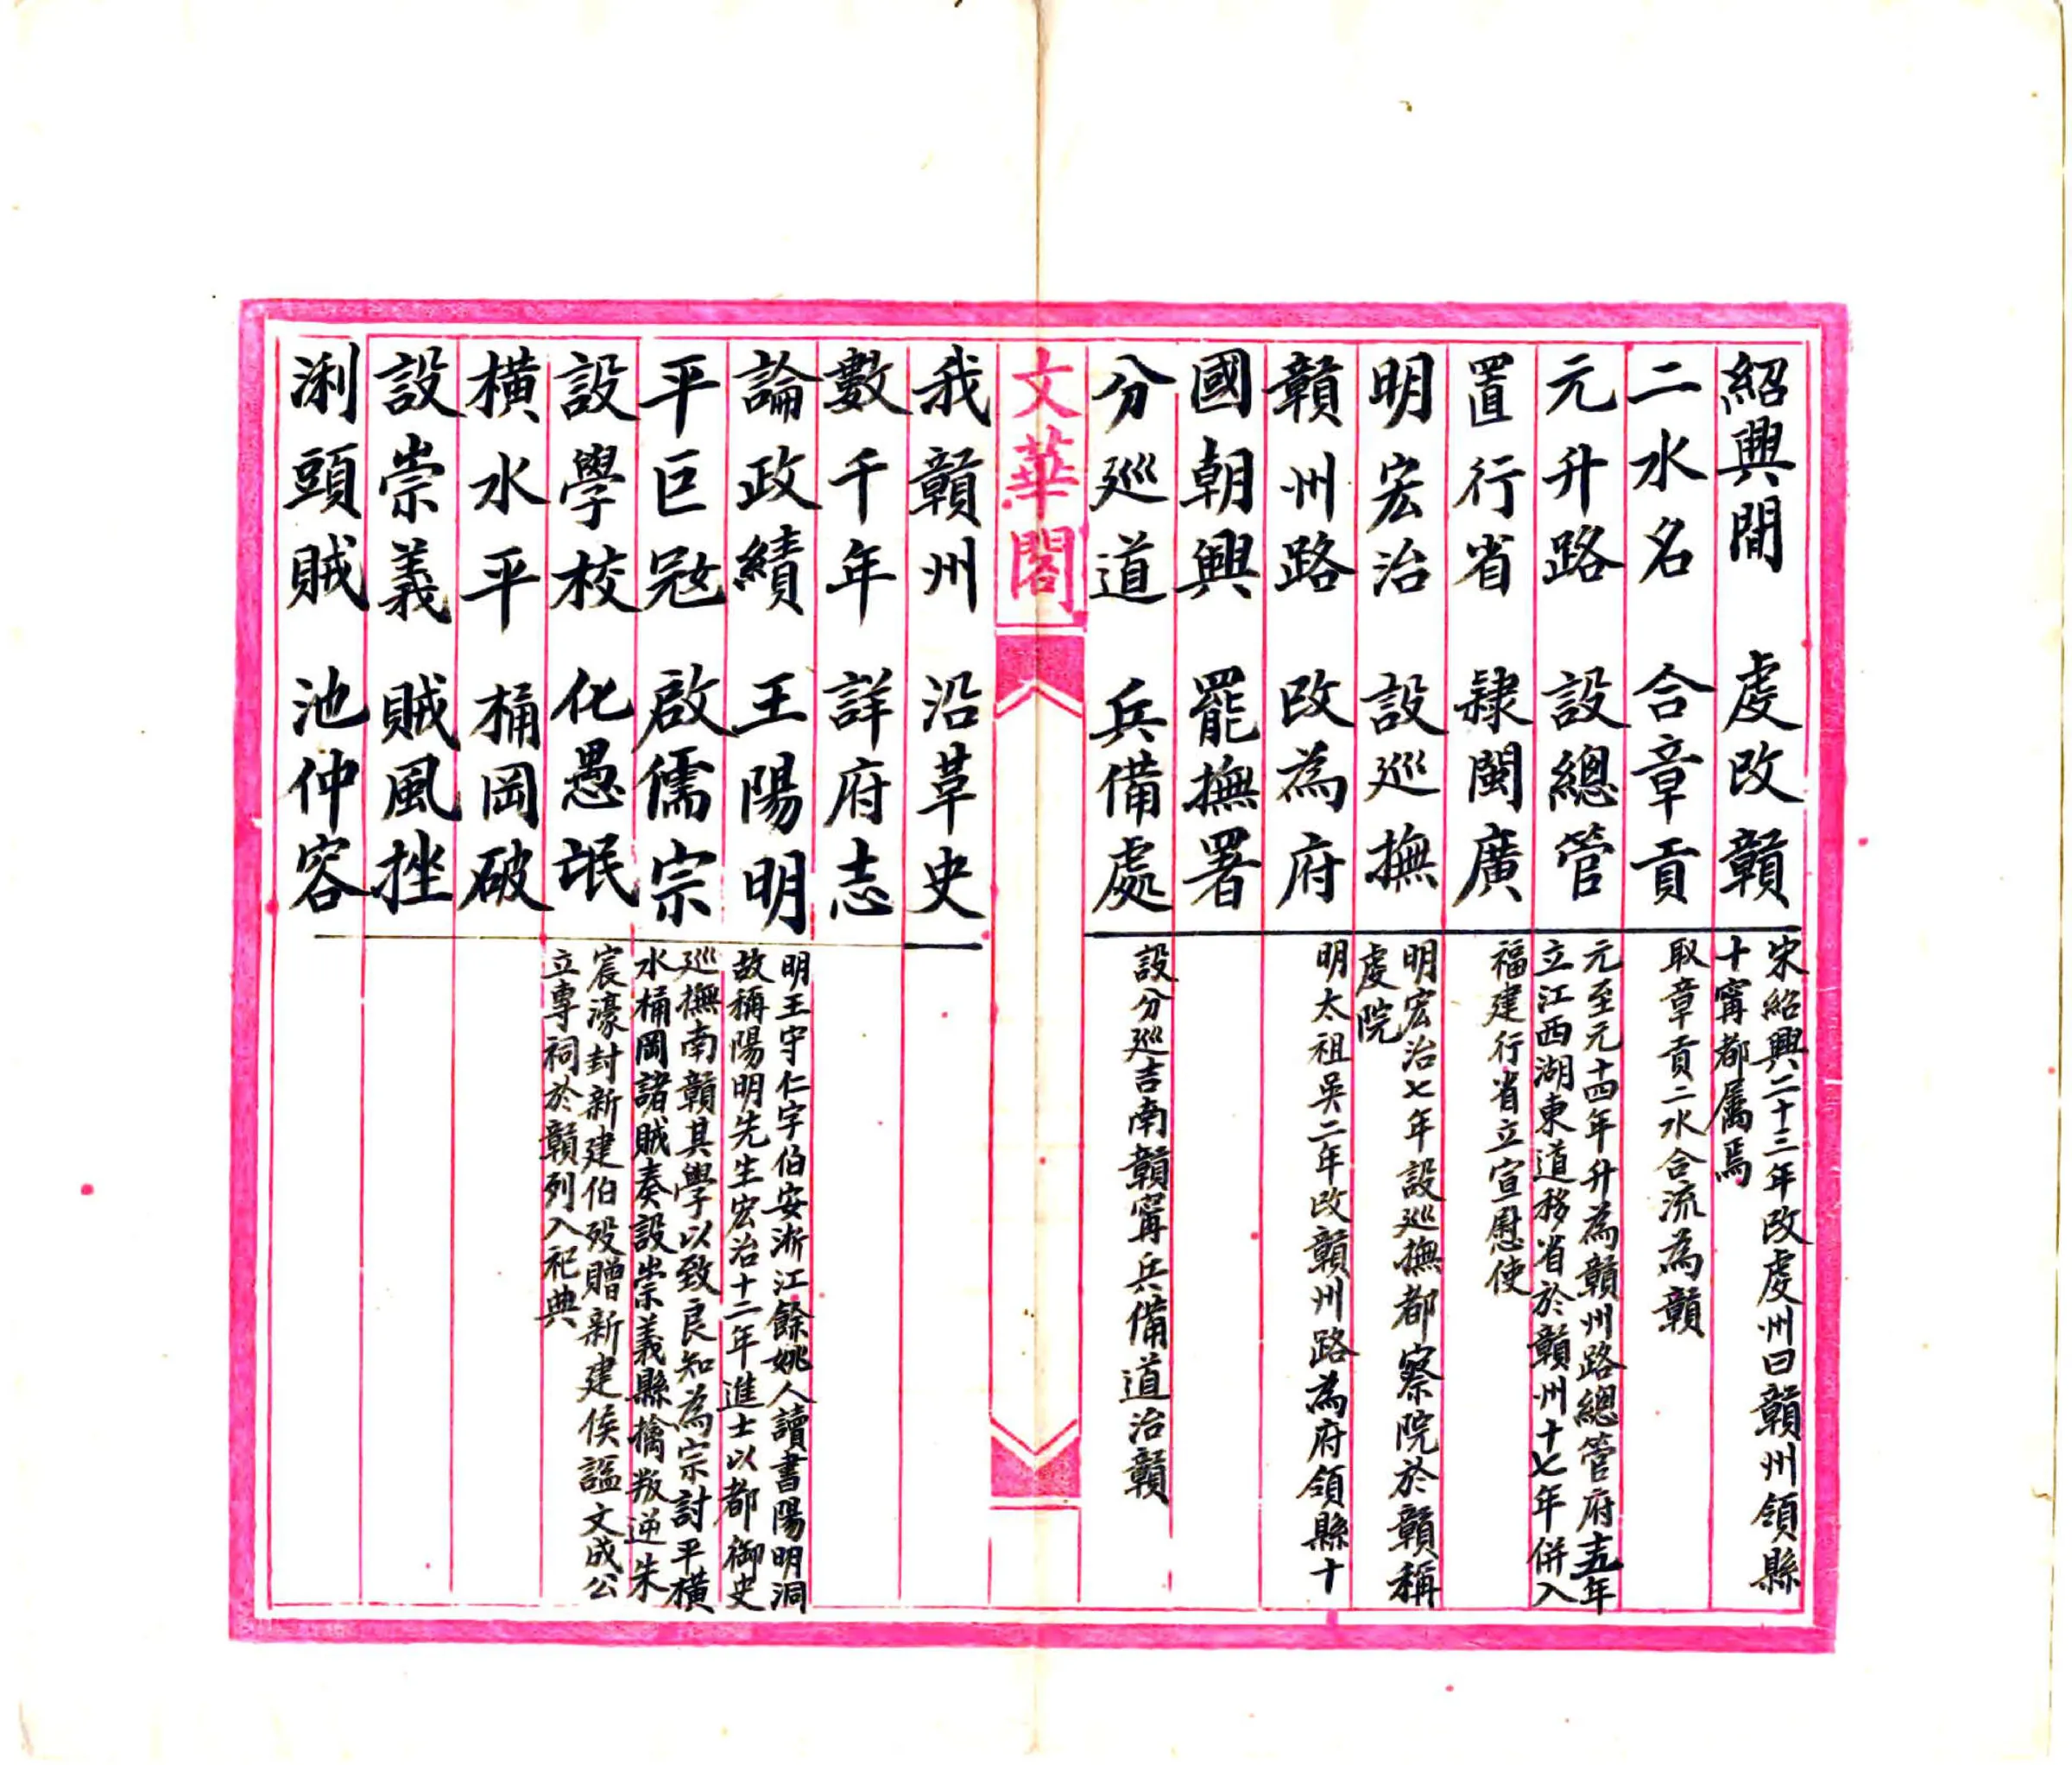 紹興間　虔改贛
宋紹興二十三年改虔州曰贛州領縣
十甯都屬焉
二水名　合章貢
取章貢二水合流為贛
元升路　設總管
元至元十四年升為贛州路總管府十五年
立江西湖東道移省於贛州十七年併入
置行省　隸閩廣
福建行省立宣慰使
明宏治　設巡撫
明宏治七年設巡撫都察院於贛稱
虔院
贛州路　改為府
明太祖吳二年改贛州路為府領縣十
國朝興　罷撫署
分巡道　兵備處
設分巡吉南贛甯兵備道治贛
文華閣
我贛州　沿革史
數千年　詳府志
論政績　王陽明
明王守仁字伯安浙江餘姚人讀書陽明洞
故稱陽明先生宏治十二年進士以都御史
平巨寇　啟儒宗
巡撫南贛其學以致良知為宗討平橫
水桶岡諸賊奏設崇義縣擒叛逆朱
設學校　化愚氓
宸濠封新建伯歿贈新建侯謚文成公
立專祠於贛列入祀典
橫水平　桶岡破
設崇義　賊風挫
浰頭賊　池仲容